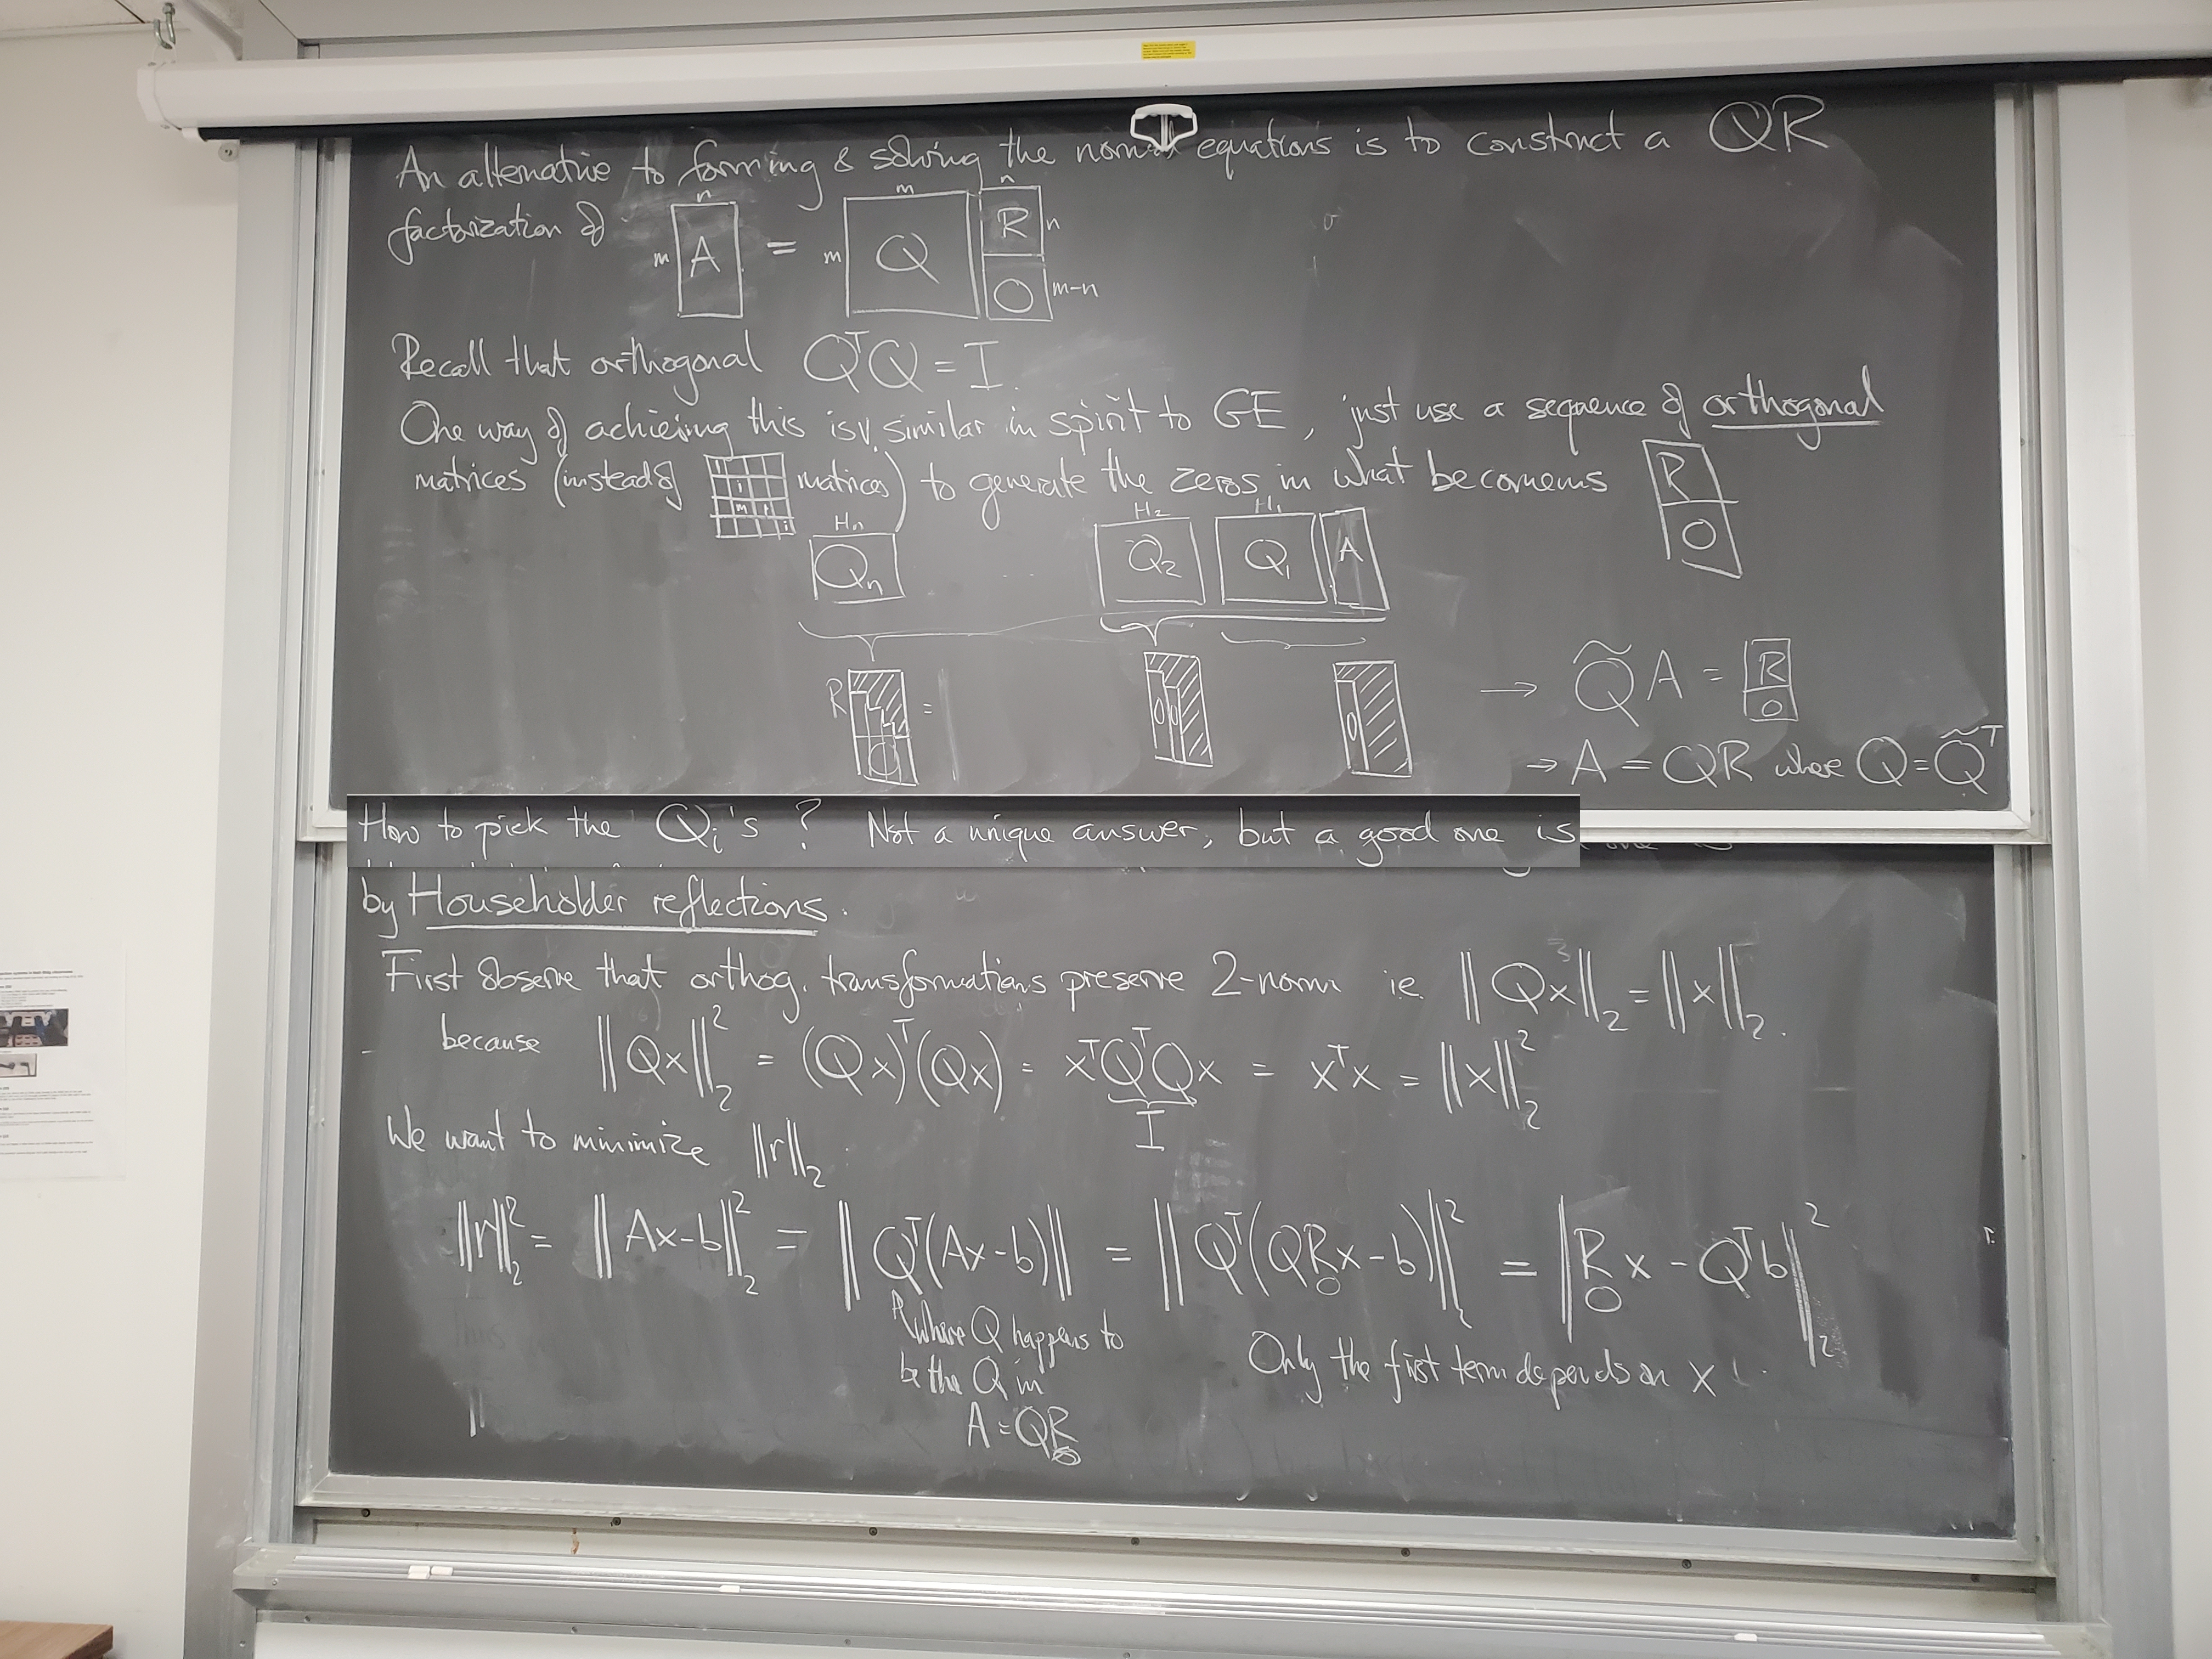 An alternative to forming & solving the normal equations is to construct a QR
factorization of m n A = m m Q n R n O m-n
Recall that orthogonal QᵀQ = I.
One way of achieving this is v. similar in spirit to GE, just use a sequence of orthogonal
matrices (instead of 1 1 m 1 1 matrices) to generate the zeros in what becomems R O
Hn H2 H1
Qn ... Q2 Q1 A
R O = 0 0 0 → Q̃A = R O
→ A = QR where Q = Q̃ᵀ
How to pick the Qi's? Not a unique answer, but a good one is
by Householder reflections.
First observe that orthog. transformations preserve 2-norm ie. ‖Qx‖₂ = ‖x‖₂.
because ‖Qx‖₂² = (Qx)ᵀ(Qx) = xᵀQᵀQx = xᵀx = ‖x‖₂²
I
We want to minimize ‖r‖₂.
‖r‖₂² = ‖Ax-b‖₂² = ‖Qᵀ(Ax-b)‖ = ‖Qᵀ(Q R O x-b)‖₂² = ‖R O x - Qᵀb‖₂²
where Q happens to
be the Q in
A = Q R O
Only the first term depends on x